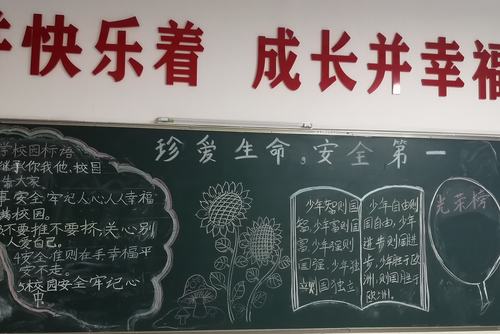 快乐着 成长并幸福
珍爱生命,安全第一
学校园标语
继承你我他,校园
告大家
事安全牢记人心人人幸福
满校园。
不要推不要挤,关心别
人爱自己。
4安全准则在手幸福平
安不走。
5校园安全牢记心
中
少年智则国
智,少年富则国
富,少年强则
国强,少年独
立则国独立
少年自由则
国自由,少年
进步则国进
步,少年胜于
欧洲,则国胜于
欧洲。
光荣榜